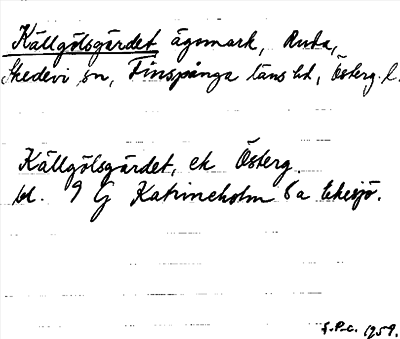 Källgölsgärdet ägomark, Ruda,
Skedevi sn, Finspånga läns hd, Österg. l.
Källgölsgärdet, ek Österg.
bl. 9 G Katrineholm 8a Ekesjö.
1959.